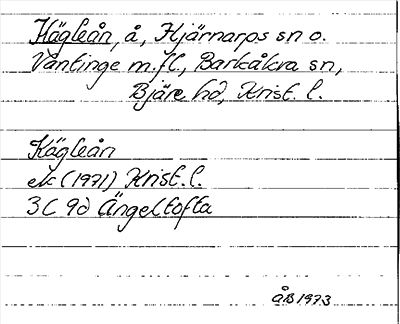 Kägleån, å, Hjärnarps sn o.
Våntinge m.fl., Barkåkra sn,
Bjäre hd, Krist. l.
Kägleån
ek (1971) Krist. l.
3C 9d Ängeltofta
ÅB 1973